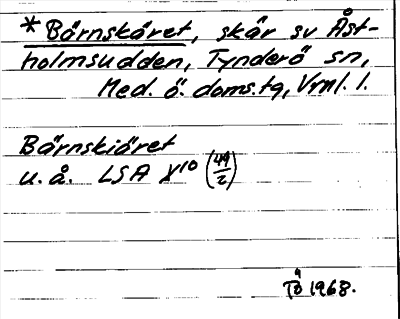 * Bårnskåret, skär sv Åst-
holmsudden, Tynderö sn,
Med. ö. doms.tg, Vrnl. l.
Bårnskiäret
u. å. LSA X¹⁰ (49/2)
1968.